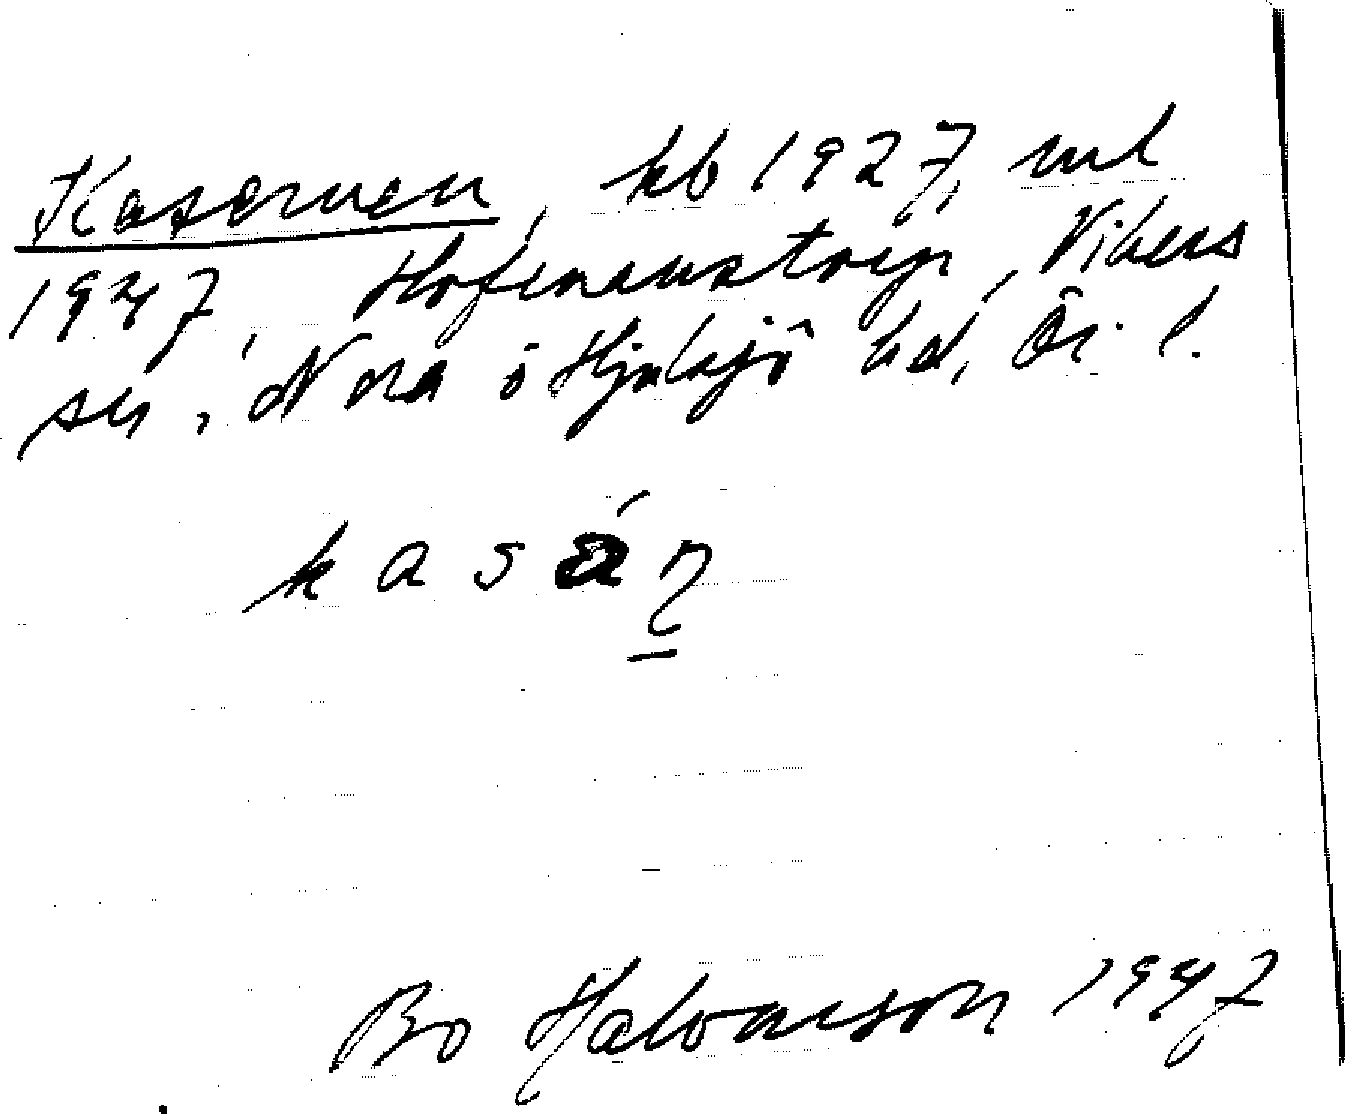 Kasernen, kb 1927, ml
1947, Hofmanstorp, Vikers
sn, Nora o Hjulsjö bd, Ör. l.
kasá̵ɳ
Bo Halvarson 1947